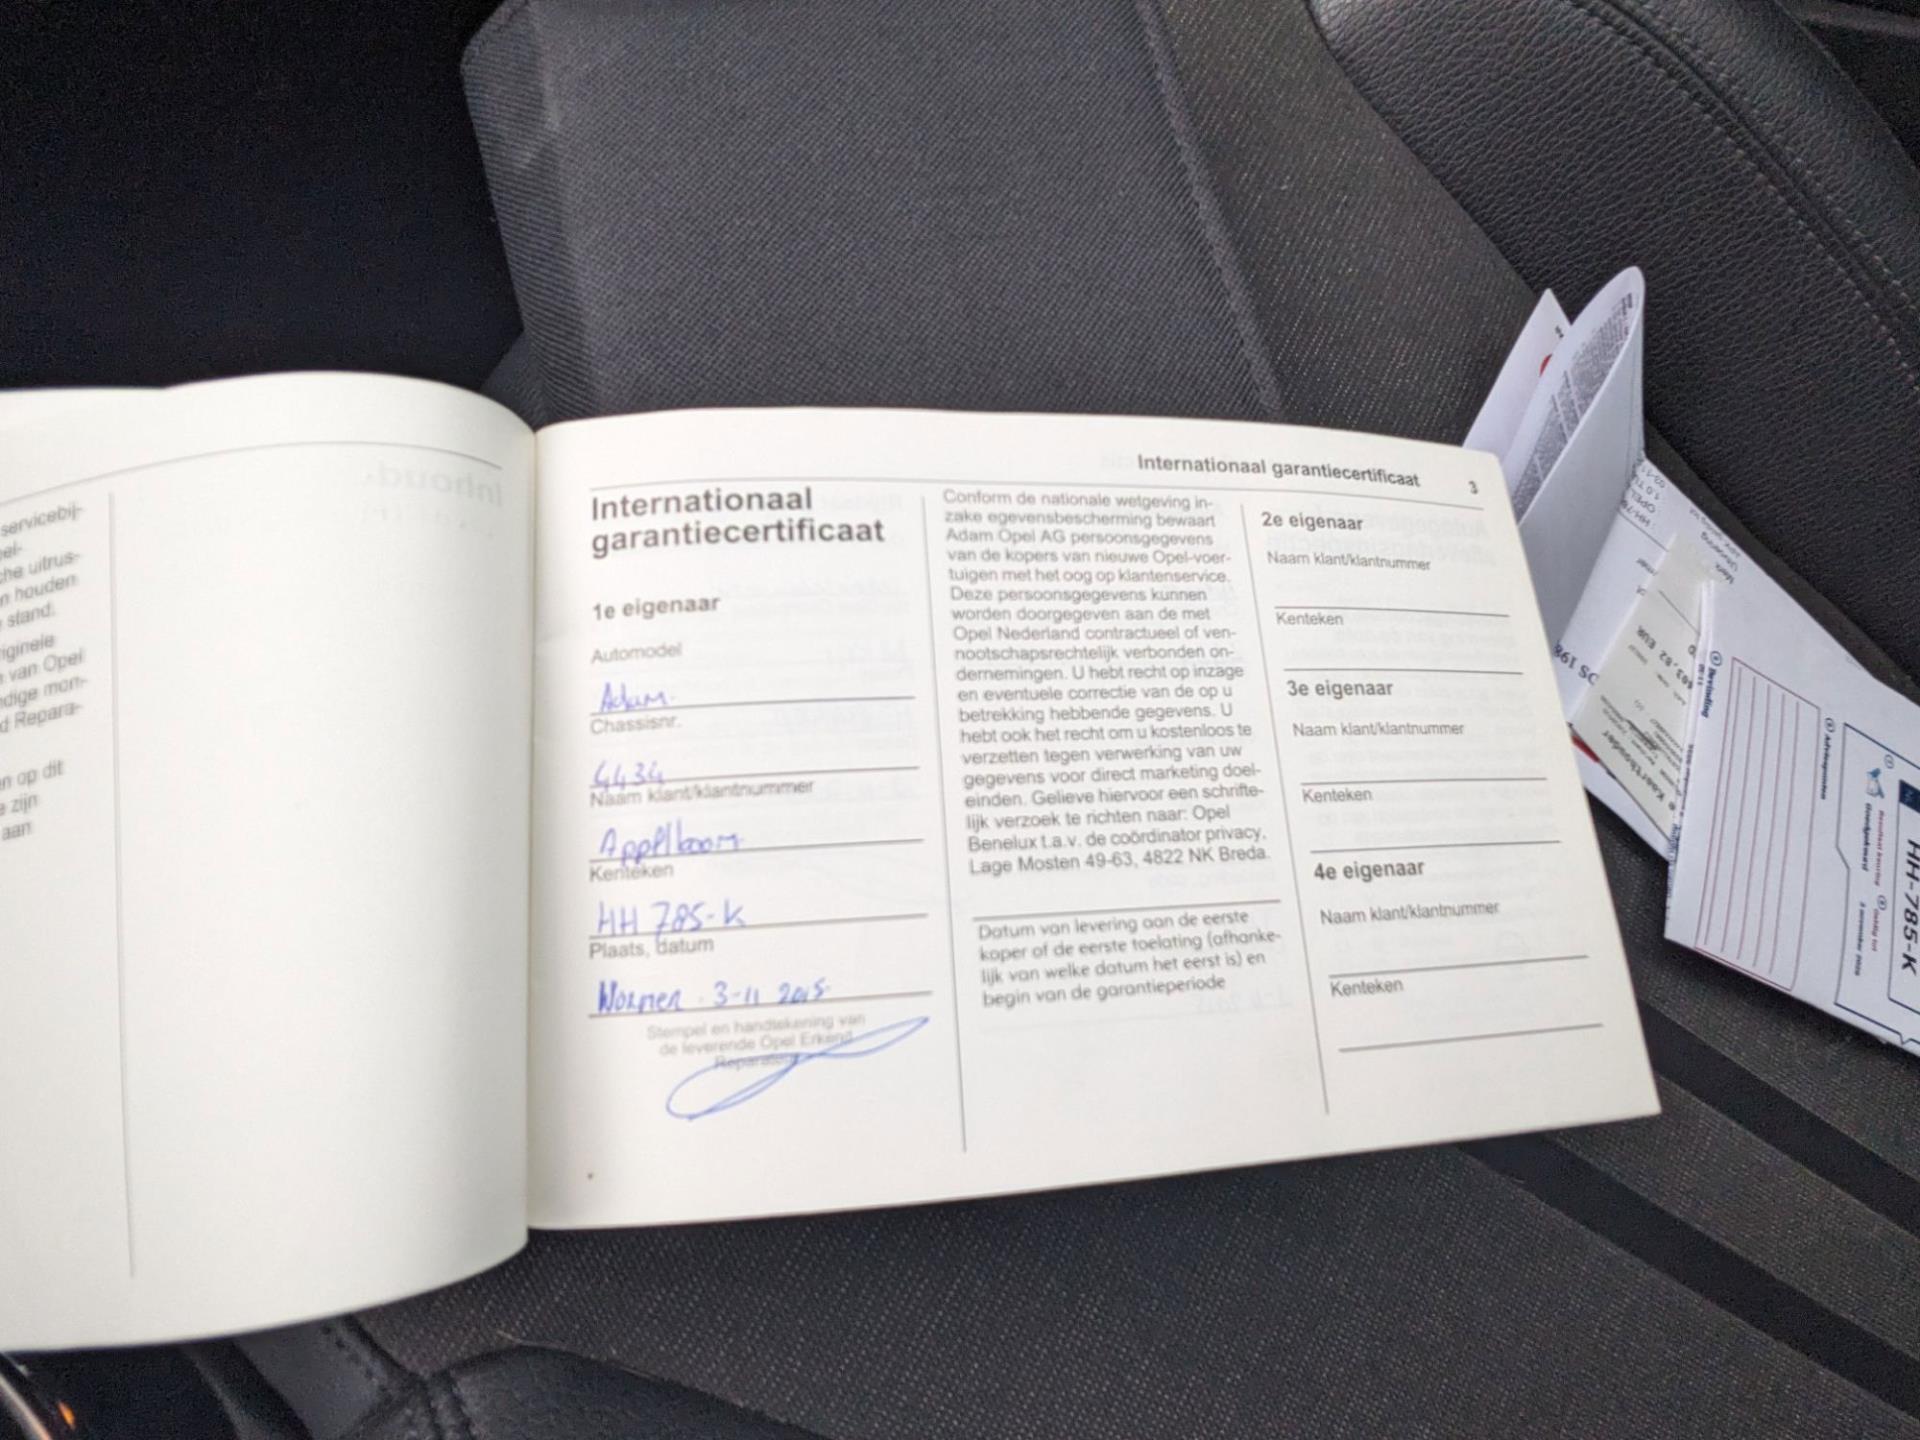 servicebij-
che uitrus-
n houden
stand.
riginele
van Opel
ndige mon-
d Repara-
en op dit
zijn
aan
Internationaal garantiecertificaat 3
Internationaal
garantiecertificaat
1e eigenaar
Automodel
Adam.
Chassisnr.
4434
Naam klant/klantnummer
Appelboom
Kenteken
HH 785-K
Plaats, datum
Wormer. 3-11 2015
Stempel en handtekening van
de leverende Opel Erkend
Reparateur
Conform de nationale wetgeving in-
zake egevensbescherming bewaart
Adam Opel AG persoonsgegevens
van de kopers van nieuwe Opel-voer-
tuigen met het oog op klantenservice.
Deze persoonsgegevens kunnen
worden doorgegeven aan de met
Opel Nederland contractueel of ven-
nootschapsrechtelijk verbonden on-
dernemingen. U hebt recht op inzage
en eventuele correctie van de op u
betrekking hebbende gegevens. U
hebt ook het recht om u kostenloos te
verzetten tegen verwerking van uw
gegevens voor direct marketing doel-
einden. Gelieve hiervoor een schrifte-
lijk verzoek te richten naar: Opel
Benelux t.a.v. de coördinator privacy,
Lage Mosten 49-63, 4822 NK Breda.
Datum van levering aan de eerste
koper of de eerste toelating (afhanke-
lijk van welke datum het eerst is) en
begin van de garantieperiode
2e eigenaar
Naam klant/klantnummer
Kenteken
3e eigenaar
Naam klant/klantnummer
Kenteken
4e eigenaar
Naam klant/klantnummer
Kenteken
HH-785-K
Goedgekeurd
Adviespunten